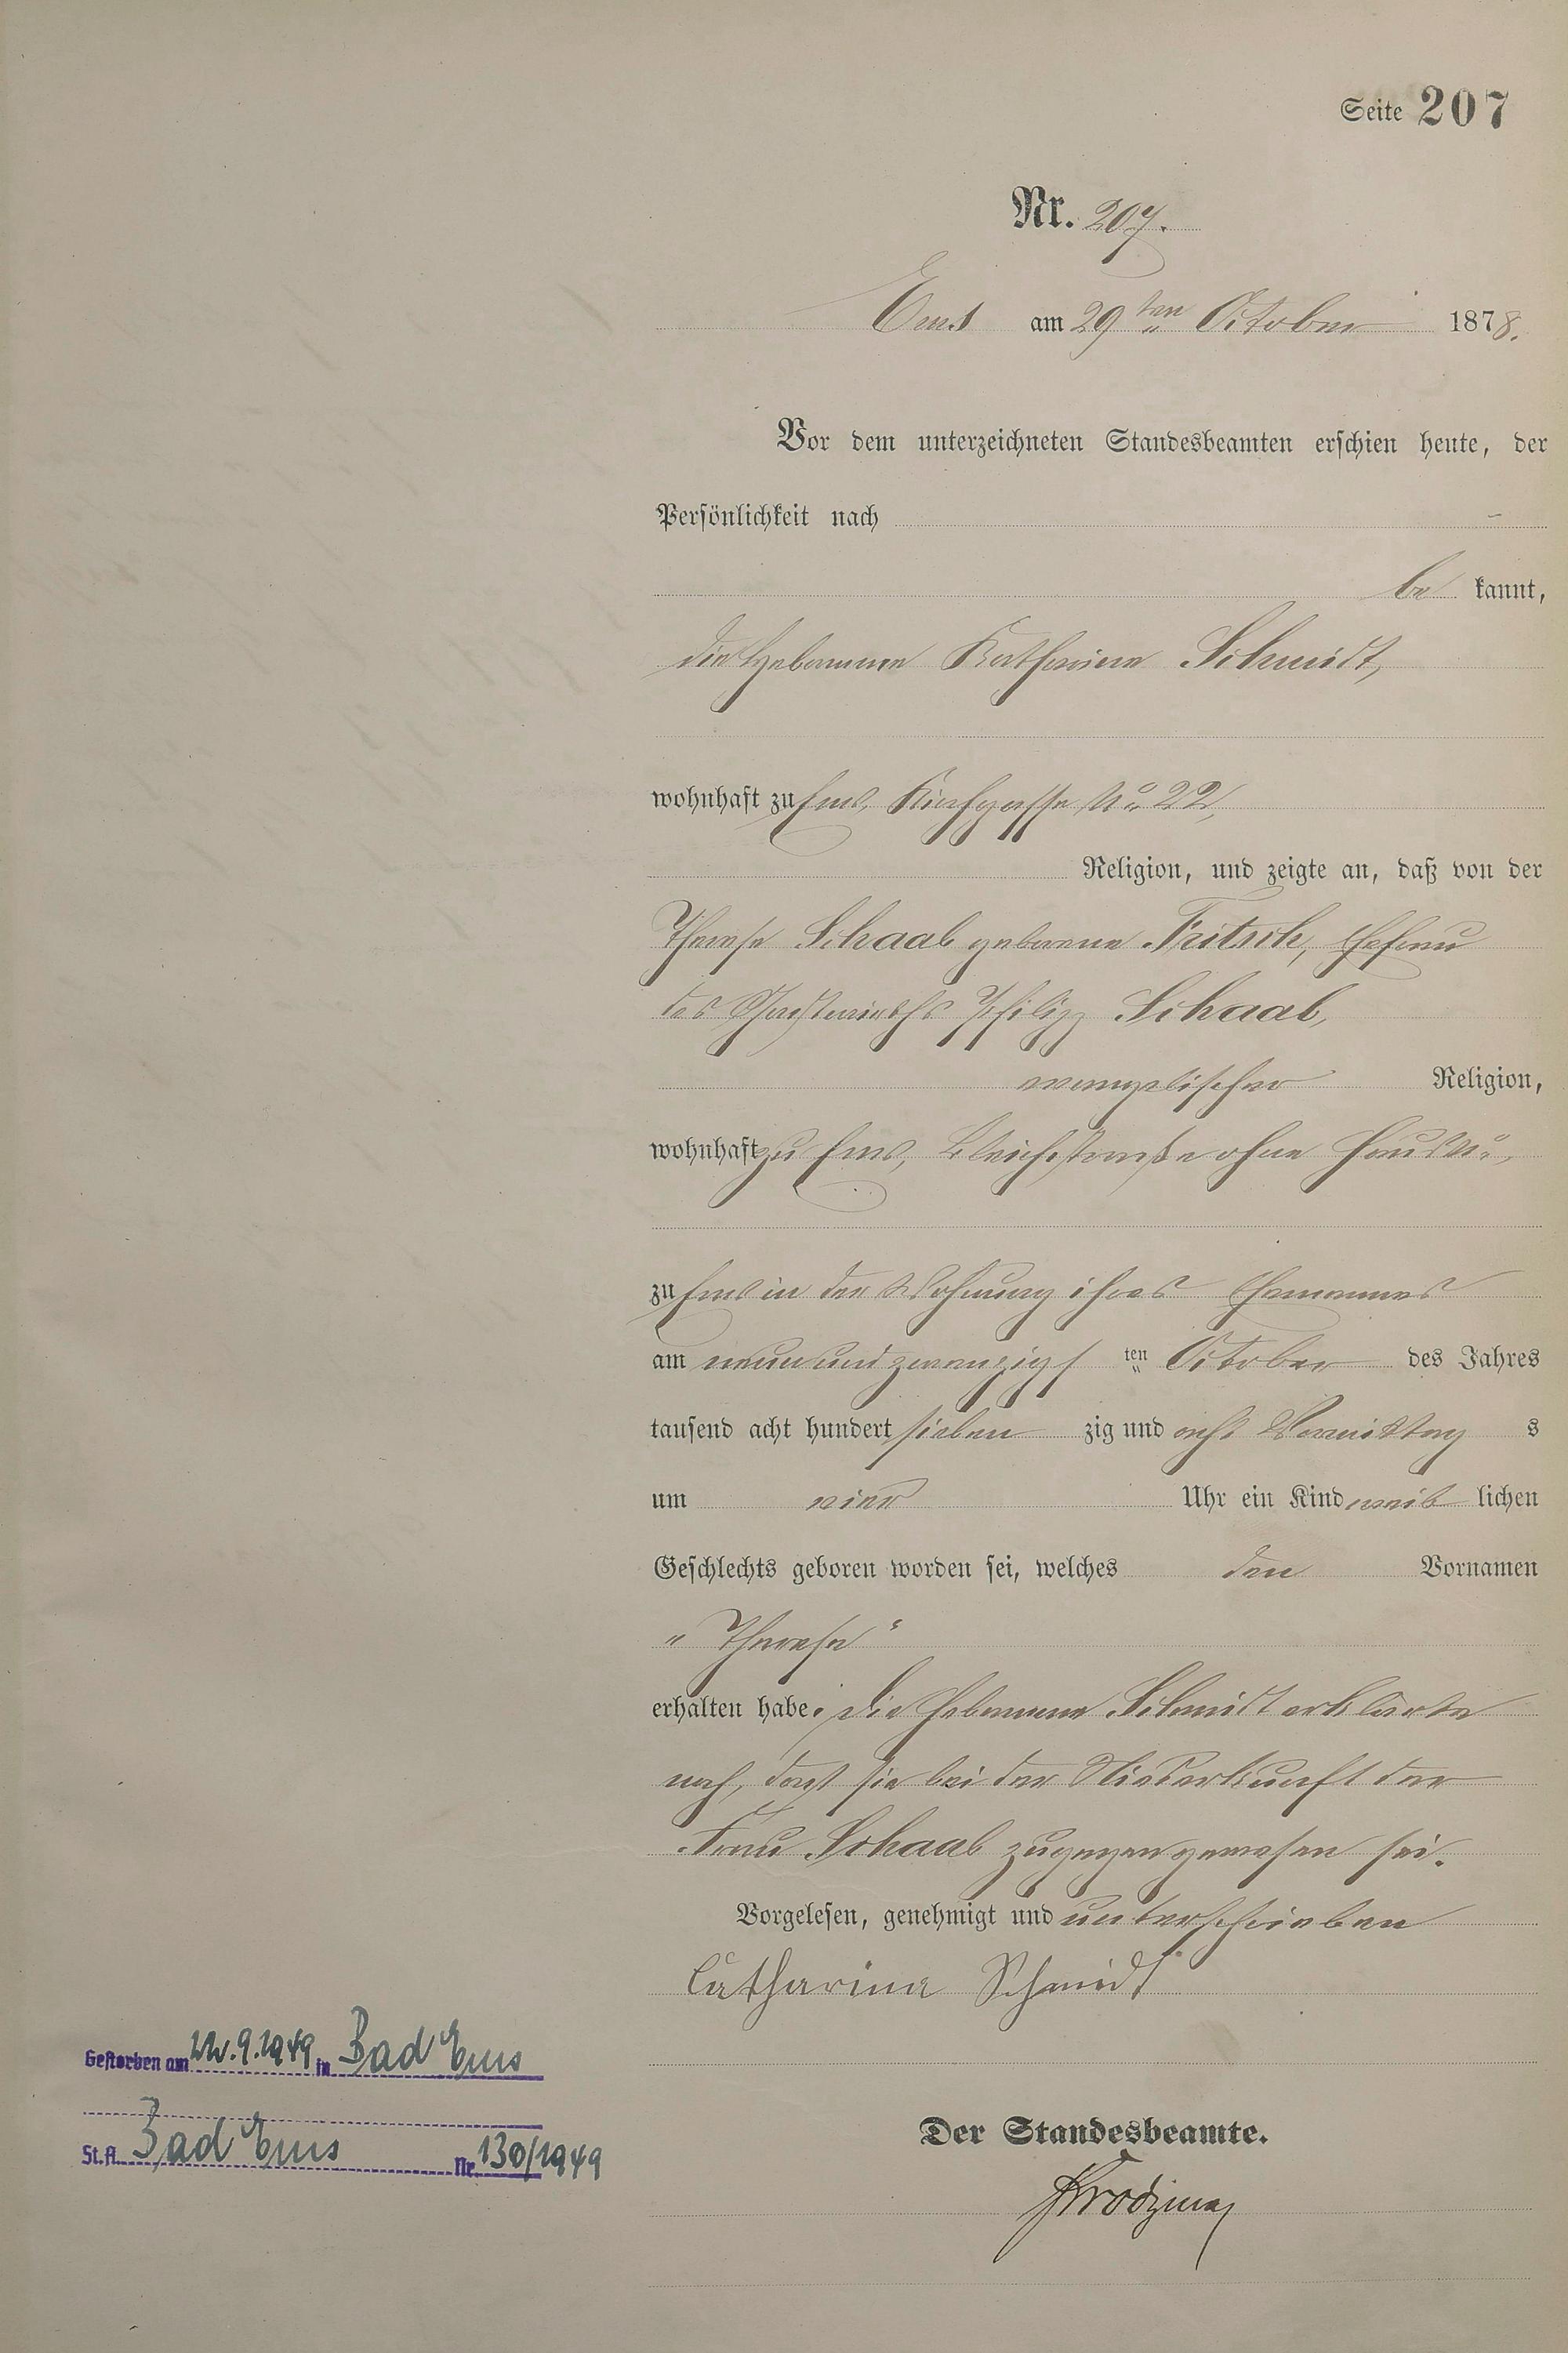 Seite 207
Nr. 207.
Ems am 29ten October 1878.
Vor dem unterzeichneten Standesbeamten erschien heute, der
Persönlichkeit nach
be kannt,
die Hebamme Katharine Schmidt,
wohnhaft zu Ems, Kirchgasse No 22,
Religion, und zeigte an, daß von der
Therese Schaab geborene Fritsch, Ehefrau
des Gastwirths Philipp Schaab,
evangelischer Religion,
wohnhaft zu Ems, Bleichstraße ohne Haus No,
zu Ems in der Wohnung ihres Ehemannes
am neunundzwanzigs ten October des Jahres
tausend acht hundert sieben zig und acht Vormittag s
um vier Uhr ein Kind weib lichen
Geschlechts geboren worden sei, welches den Vornamen
„Therese“
erhalten habe. Die Hebamme Schmidt erklärte
noch, daß sie bei der Niederkunft der
Frau Schaab zugegen gewesen sei.
Vorgelesen, genehmigt und unterschrieben
Catharina Schmidt
Gestorben am 22.9.1949 in Bad Ems
St.A. Bad Ems Nr. 130/1949
Der Standesbeamte.